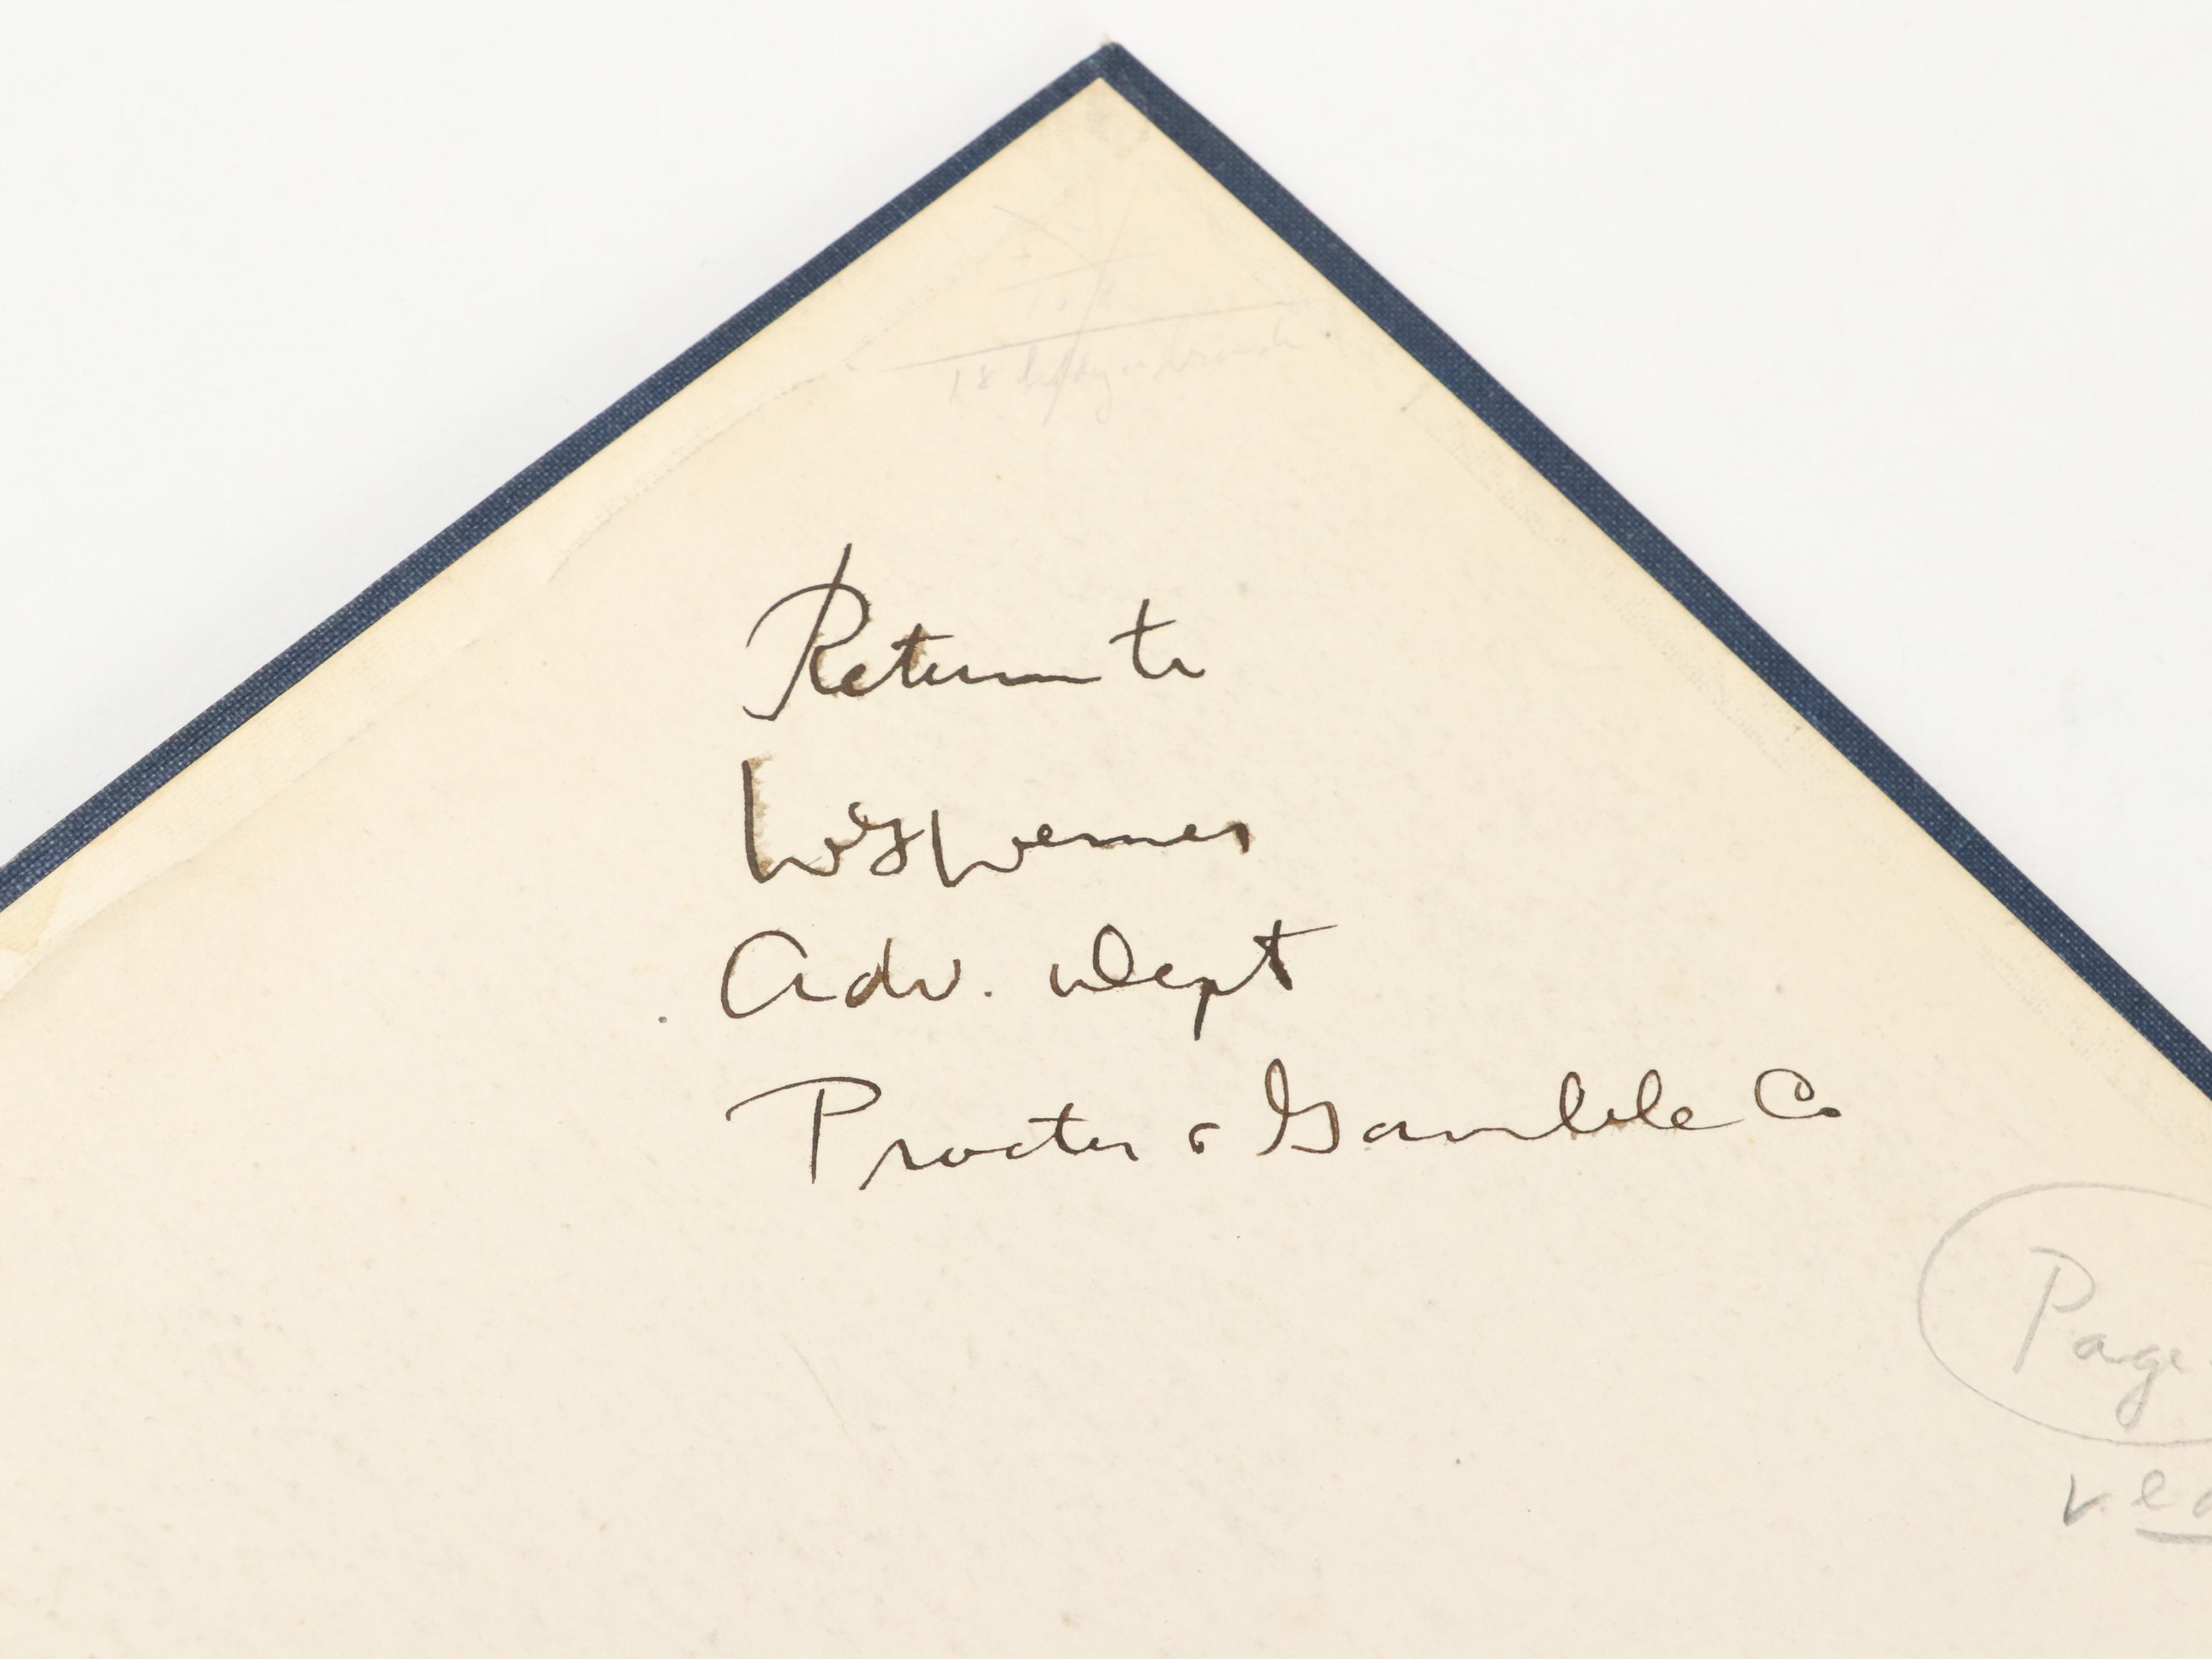 Return to
W G Werner
Adv. Dept
Procter & Gamble Co
Page